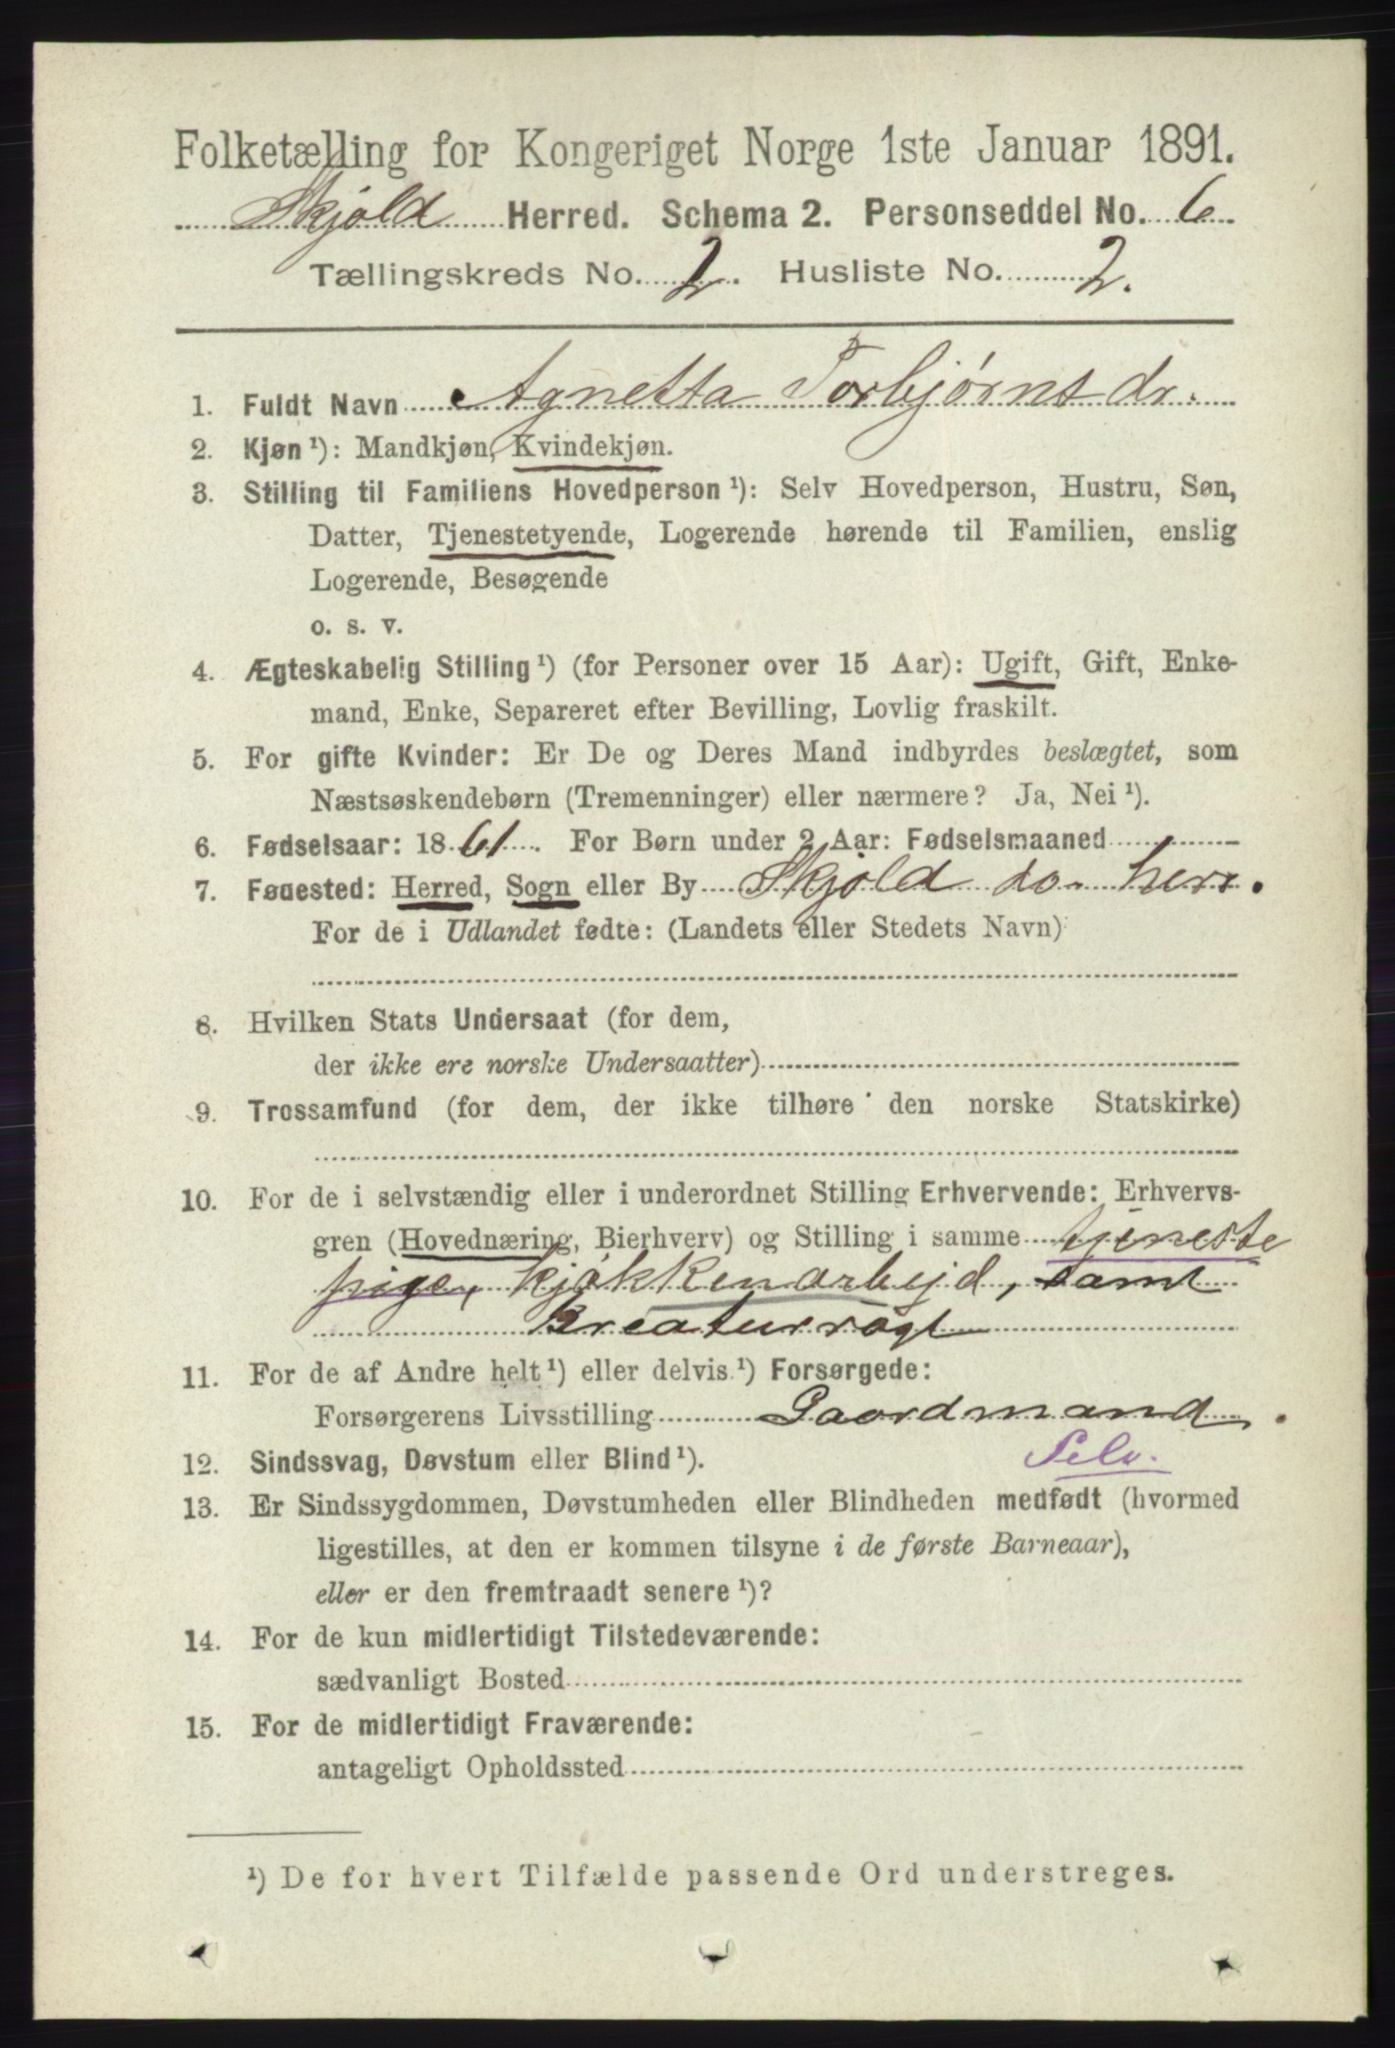 Folketælling for Kongeriget Norge 1ste Januar 1891.
Skjold Herred. Schema 2. Personseddel No. 6
Tællingskreds No. 2. Husliste No. 2.
1. Fuldt Navn Agnetta Torbjørnsdr.
2. Kjøn ¹): Mandkjøn, Kvindekjøn.
3. Stilling til Familiens Hovedperson ¹): Selv Hovedperson, Hustru, Søn,
Datter, Tjenestetyende, Logerende hørende til Familien, enslig
Logerende, Besøgende
o. s. v.
4. Ægteskabelig Stilling ¹) (for Personer over 15 Aar): Ugift, Gift, Enke-
mand, Enke, Separeret efter Bevilling, Lovlig fraskilt.
5. For gifte Kvinder: Er De og Deres Mand indbyrdes beslægtet, som
Næstsøskendebørn (Tremenninger) eller nærmere? Ja, Nei ¹).
6. Fødselsaar: 1861. For Børn under 2 Aar: Fødselsmaaned
7. Fødested: Herred, Sogn eller By Skjold do herr.
For de i Udlandet fødte: (Landets eller Stedets Navn)
8. Hvilken Stats Undersaat (for dem,
der ikke ere norske Undersaatter)
9. Trossamfund (for dem, der ikke tilhøre den norske Statskirke)
10. For de i selvstændig eller i underordnet Stilling Erhvervende: Erhvervs-
gren (Hovednæring, Bierhverv) og Stilling i samme tjeneste
pige, kjøkkenarbejd, samt
Kreaturrøgt
11. For de af Andre helt ¹) eller delvis ¹) Forsørgede:
Forsørgerens Livsstilling Gaardmand.
12. Sindssvag, Døvstum eller Blind ¹). Selv.
13. Er Sindssygdommen, Døvstumheden eller Blindheden medfødt (hvormed
ligestilles, at den er kommen tilsyne i de første Barneaar),
eller er den fremtraadt senere ¹)?
14. For de kun midlertidigt Tilstedeværende:
sædvanligt Bosted
15. For de midlertidigt Fraværende:
antageligt Opholdssted
¹) De for hvert Tilfælde passende Ord understreges.